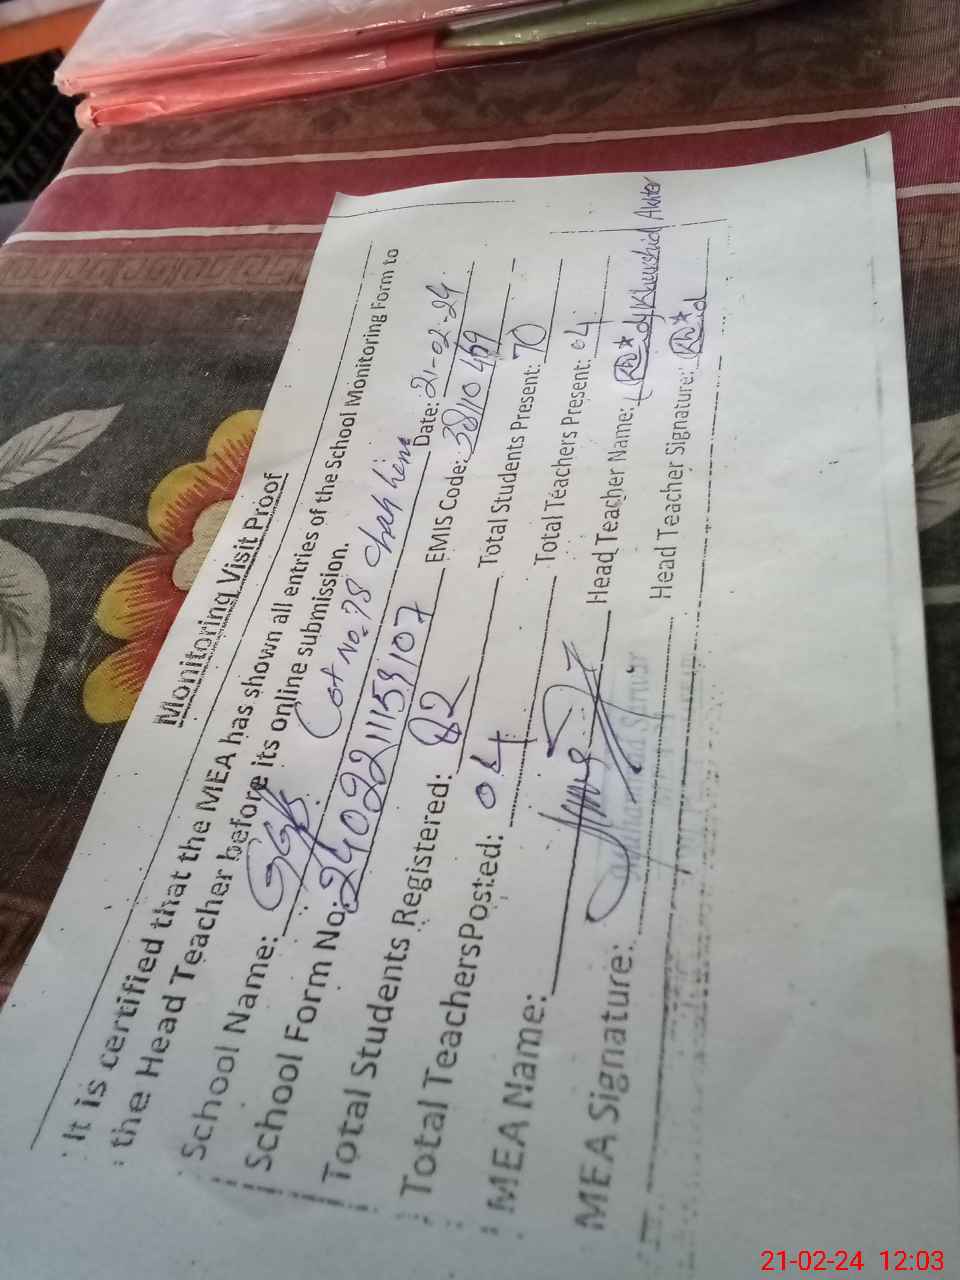 Monitoring Visit Proof
It is certified that the MEA has shown all entries of the School Monitoring Form to
the Head Teacher before its online submission.
School Name: GGPS Cot No. 78 Date: 21-02-24
School Form No: 24022111159107 EMIS Code: 38110469
Total Students Registered: 82 Total Students Present: 70
Total Teachers Posted: 04 Total Teachers Present: 04
MEA Name: Head Teacher Name: Khurshid Akhter
MEA Signature: Head Teacher Signature:
Muhammad Serwar
21-02-24 12:03